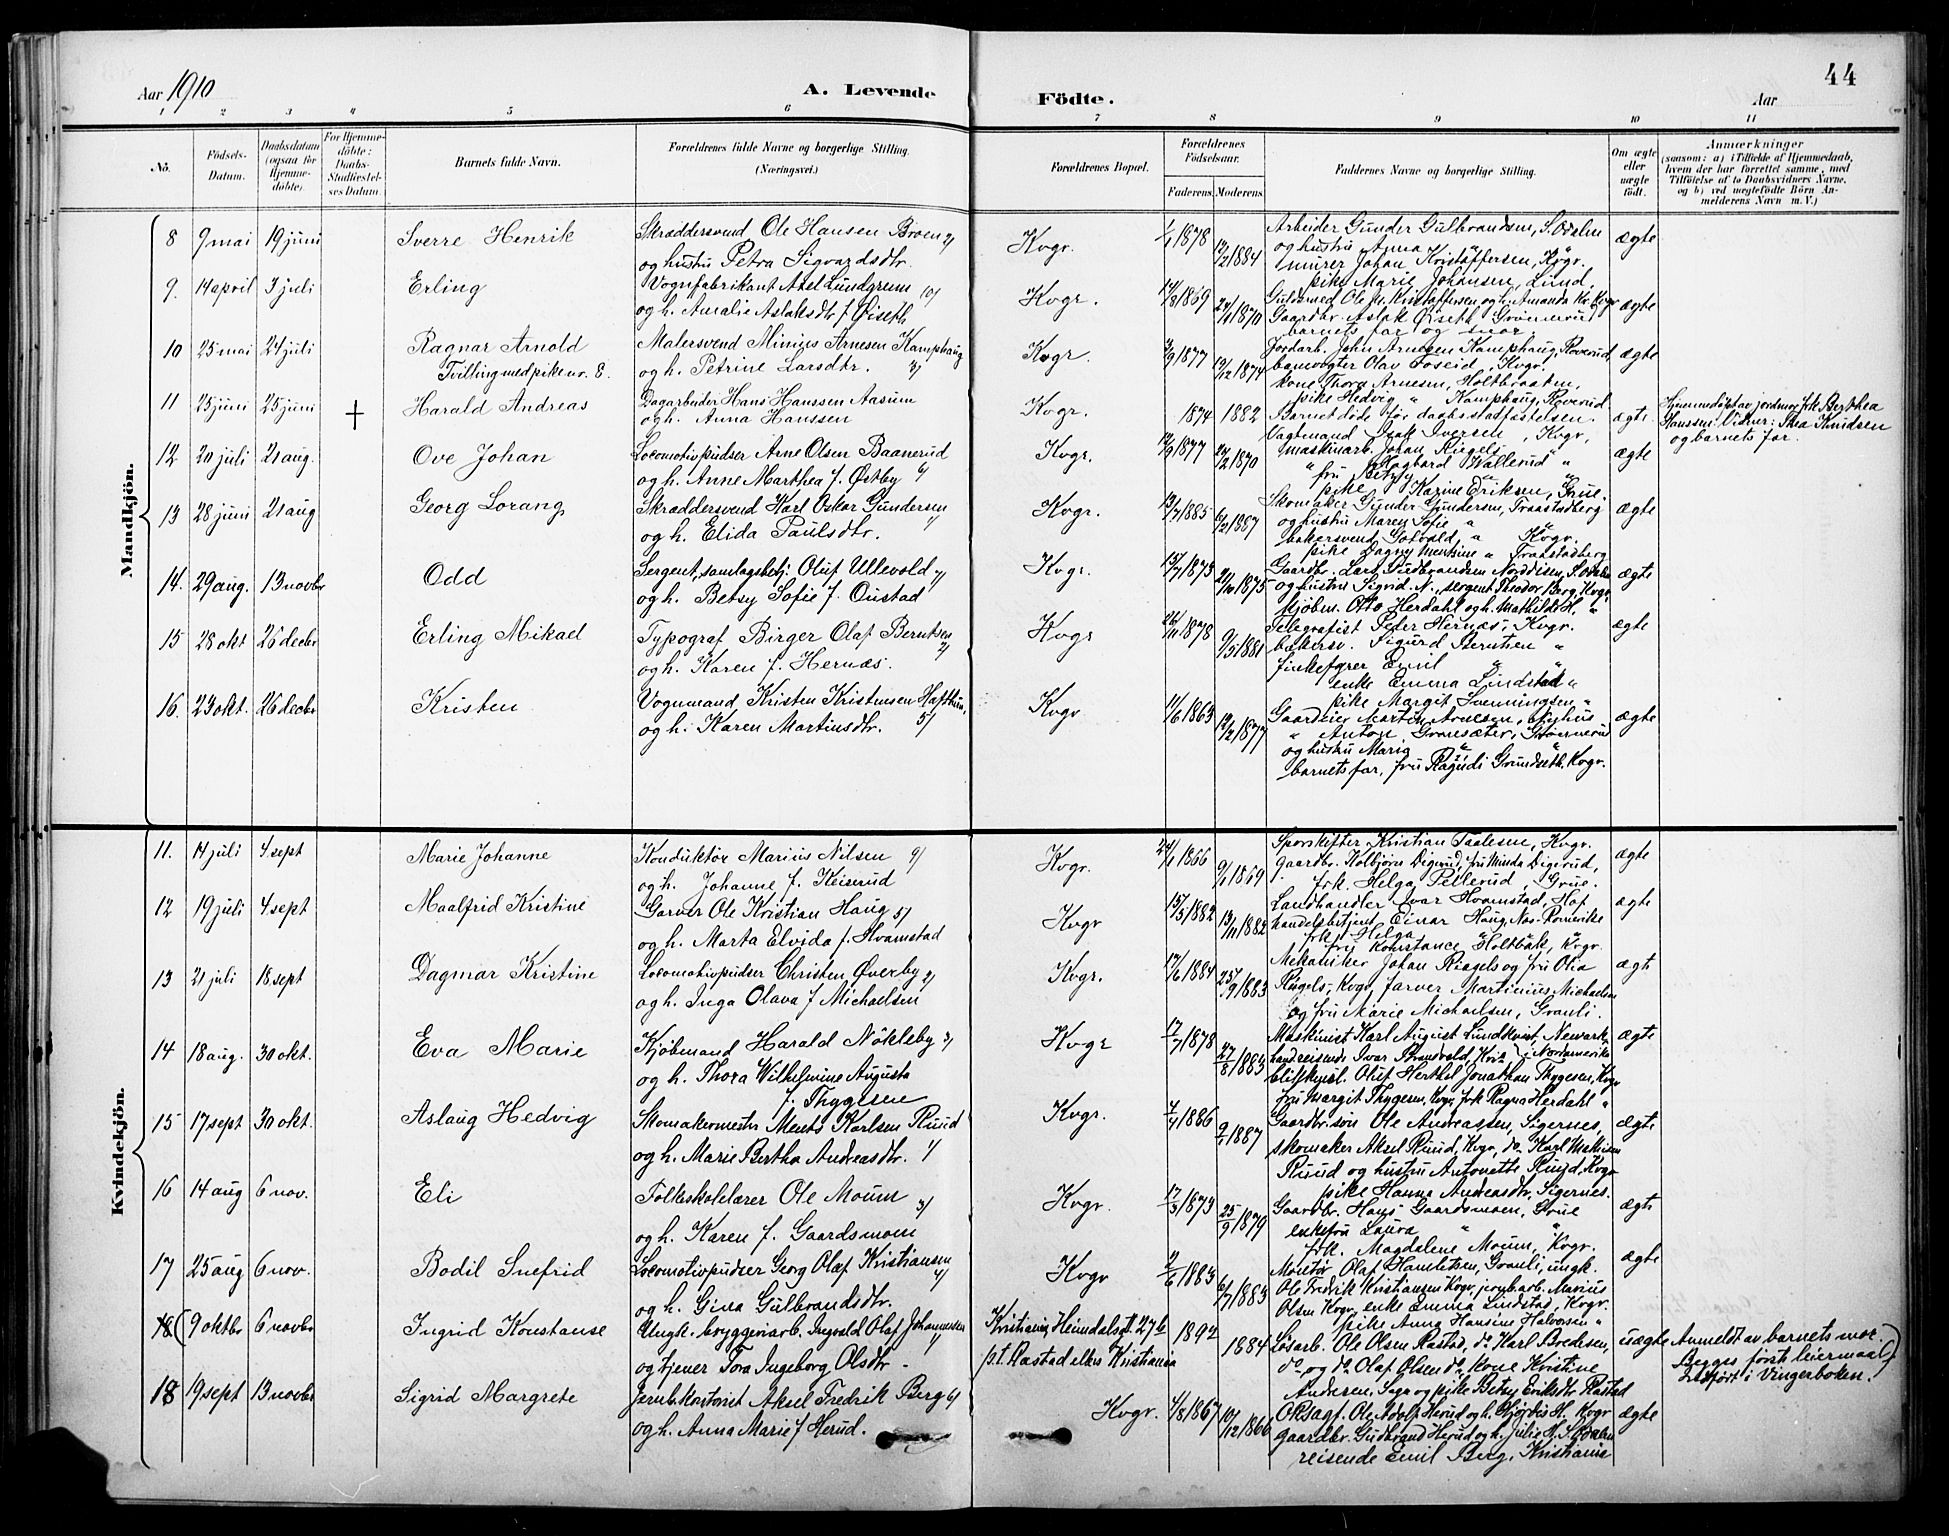 Aar 1910
A. Levende
Födte.
Aar
44
1 2 3 4 5 6 7 8 9 10 11
No.
Födsels-Datum.
Daabsdatum (ogsaa for Hjemmedöbte).
For Hjemmedöbte: Daabs-Stadfæstelses Datum.
Barnets fulde Navn.
Forældrenes fulde Navne og borgerlige Stilling. (Næringsvei.)
Forældrenes Bopæl.
Forældrenes Födselsaar.
Faderens. Moderens.
Faddernes Navne og borgerlige Stilling.
Om ægte eller uægte födt.
Anmærkninger
(saasom: a) i Tilfælde af Hjemmedaab, hvem der har forrettet samme, med Tilföielse af to Daabsvidners Navne, og b) ved uægtefödte Börn Anmelderens Navn m. V.)
Mandkjön.
8 9 mai 19 juni Sverre Henrik Skræddersvend Ole Hansen Broen 2/
og hustru Petra Sigvardsdtr.
Kvgr. 1/1 1878 12/2 1884
Arbeider Gunder Gulbrandsen, S. Odalen
og hustru Anna "
murer Johan Kristoffersen, Kvgr.
pike Marie Johansen, Lund.
ægte
9. 14 april 3 juli Erling Vognfabrikant Axel Lundgreen 10/
og h. Auralie Aslaksdtr f. Øiseth
Kvgr. 14/8 1869 24/11 1870
Guldsmed Ole Kr. Kristoffersen og h. Amanda Kr. Kvgr
Gaardbr. Aslak Øiseth Grønnerud
barnets far og mor.
ægte
10 25 mai 24 juli Ragnar Arnold
Tvilling med pike nr. 8.
Malersvend Minius Arnesen Kamphaug
og h. Petrine Larsdtr. 3/
Kvgr. 3/9 1877 19/12 1874
Jordarb. John Arnesen Kamphaug, Roverud,
banevogter Olav Foseid, Kvgr.
kone Thora Arnesen, Holtbraaten,
pike Hedvig " Kamphaug, Roverud
ægte
11 25 juni 25 juni † Harald Andreas Dagarbeider Hans Hanssen Aasum
og h. Anna Hanssen
Kvgr. 1874 1882
Barnet døde før daabsstadfæstelsen.
ægte
Hjemmedøpt av jordmor frk Berthea
Hanssen. Vidner: Thea Knudsen
og barnets far.
12 20 juli 21 aug. Ove Johan Locomotivpudser Arne Olsen Baanerud
og h. Anne Marthea f. Østby 4/
Kvgr. 12/9 1877 24/2 1870
Vagtmand Isak Iversen, Kvgr,
maskinarb. Johan Riegels "
" Hagbard Wallerud "
fru Betzy " "
pike Karine Eriksen, Grue.
ægte
13 28 juni 21 aug Georg Lorang Skræddersvend Karl Oskar Gundersen
og h. Elida Paulsdtr. 1/
Kvgr. 13/7 1885 6/2 1887
Skomaker Gunder Gundersen, Traastadberg
og hustru Maren Sofie "
bakersvend Gotvald " Kvgr.
pike Dagny Mentine " Traastadberg
ægte
14. 29 aug. 13 novbr Odd Sergent, samlagsbetj. Oluf Ullevold 2/
og h. Betsy Sofie f. Oustad
Kvgr. 15/7 1873 21/10 1875
Gaardbr. Lars Gudbrandsen Norddisen, S. Odalen
og hustru Sigrid N., sergent Theodor Berg, Kvgr,
kjøbm. Otto Herdahl og h. Mathilde H. "
ægte
15 28 okt 26 decbr Erling Mikael Typograf Birger Olaf Berntsen
og h. Karen f. Hernæs. 2/
Kvgr 26/11 1878 9/5 1881
Telegrafist Peder Hernæs, Kvgr.
bakersv. Sigurd Berntsen "
linkefører Emil " "
enke Emma Lindstad "
pike Margit Svenningsen "
ægte
16. 23 okt. 26 decbr Kristen Vognmand Kristen Kristensen Hafthun,
og h. Karen Martinsdtr. 5/
Kvgr 11/6 1863 12/2 1877
Gaardeier Martin Arnesen, Myhus
" Anton Granesæter, Grønnerud
og hustru Maria " "
barnets far, fru Ragndi Grundseth, Kvgr.
ægte
Kvindekjön.
11. 14 juli 4 sept Marie Johanne Konduktør Marius Nilsen 9/
og h. Johanne f. Keiserud
Kvgr. 24/1 1866 9/1 1869
Sporskifter Kristian Taalesen, Kvgr.
gaardbr. Kolbjørn Digerud, fru Minda Digerud,
frk. Helga Pellerud, Grue.
ægte
12 19 juli 4 sept Maalfrid Kristine Garver Ole Kristian Haug 5/
og h. Marta Elvida f. Hvamstad
Kvgr 15/5 1882 13/11 1882
Landhandler Ivar Hvamstad, Hof
handelsbetjent Einar Haug, Nes Romerike
frk Helga " "
fru Konstance Holtbak, Kvgr.
ægte
13 21 juli 18 sept Dagmar Kristine Locomotivpudser Christen Øverby 2/
og h. Inga Olava f. Michaelsen
Kvgr. 17/6 1884 25/9 1883
Mekaniker Johan Riegels og fru Olia
Riegels, Kvgr, farver Martinius Michaelsen
og fru Marie Michaelsen, Granli.
ægte
14 18 aug. 30 okt. Eva Marie Kjöbmand Harald Nökleby 3/
og h. Thora Wilhelmine Augusta
f. Thygesen
Kvgr 17/7 1878 27/8 1883
Maskinist Karl August Lundkvist, Newark,
handreisende Ivar Strandvold, Kvgr, i Nordamerika
Oluf Herthel Jonathan Thygesen, Kvgr
fru Margit Thygesen, Kvgr, frk Ragna Herdahl "
ægte
15 17 sept 30 okt. Aslaug Hedvig Skomakermester Mentz Karlsen Ruud
og h. Marie Bertha Andreasdtr. 1/
Kvgr. 7/4 1886 9/1 1887
Gaardbr. søn Ole Andreassen, Sigernes,
skomaker Aksel Ruud, Kvgr, do Karl Mathisen
Ruud og hustru Antonette Ruud, Kvgr
pike Hanna Andreasdtr, Sigernes.
ægte
16 14 aug 6 nov. Eli Folkeskolelærer Ole Moum 3/
og h. Karen f. Gaardsmoen
Kvgr. 17/3 1873 25/9 1879
Gaardbr. Hans Gaardsmoen, Grue
enkefru Laura " "
frk. Magdalene Moum, Kvgr.
ægte
17 25 aug 6 nov. Bodil Snefrid Locomotivpudser Georg Olaf Kristiansen
og h. Gina Gulbrandsdtr. 4/
Kvgr 2/6 1883 6/7 1883
Montør Olaf Hamletsen, Granli, ungk.
Ole Fredrik Kristiansen Kvgr, jernb.arb. Marius
Olsen Kvgr, enke Emma Lindstad, Kvgr.
pike Anna Hansine Halvorsen "
ægte
18 ( 9 oktbr 6 novbr Ingrid Konstanse Ungk. bryggeriarb. Ingvald Olaf Johannessen
og tjener Tora Ingeborg Olsdtr. 1/
Kristiania, Heimdalsgt 27 b
p.t. Rastad elles Kristiania
1892 1884
Løsarb. Ole Olsen Rastad, do Karl Bredesen,
do, og do Olaf Olsen do, kone Kristine
Andersen, Sagr og pike Betsy Eriksdtr Rastad
uægte
Anmeldt av barnets mor.
Begges første leiermaal
Indført i Vingerboken. )
18 19 sept 13 novbr Sigrid Margrete Jernb.kontorist Aksel Fredrik Berg 6/
og h. Anna Marie f Herud.
Kvgr. 4/8 1867 10/12 1866
O.R.sagf. Ole Adolf Herud og h. Hjørdis H. Kvgr
gaardbr. Gudbrand Herud og h. Julie H. S. Odalen
reisende Emil Berg, Kristiania
ægte